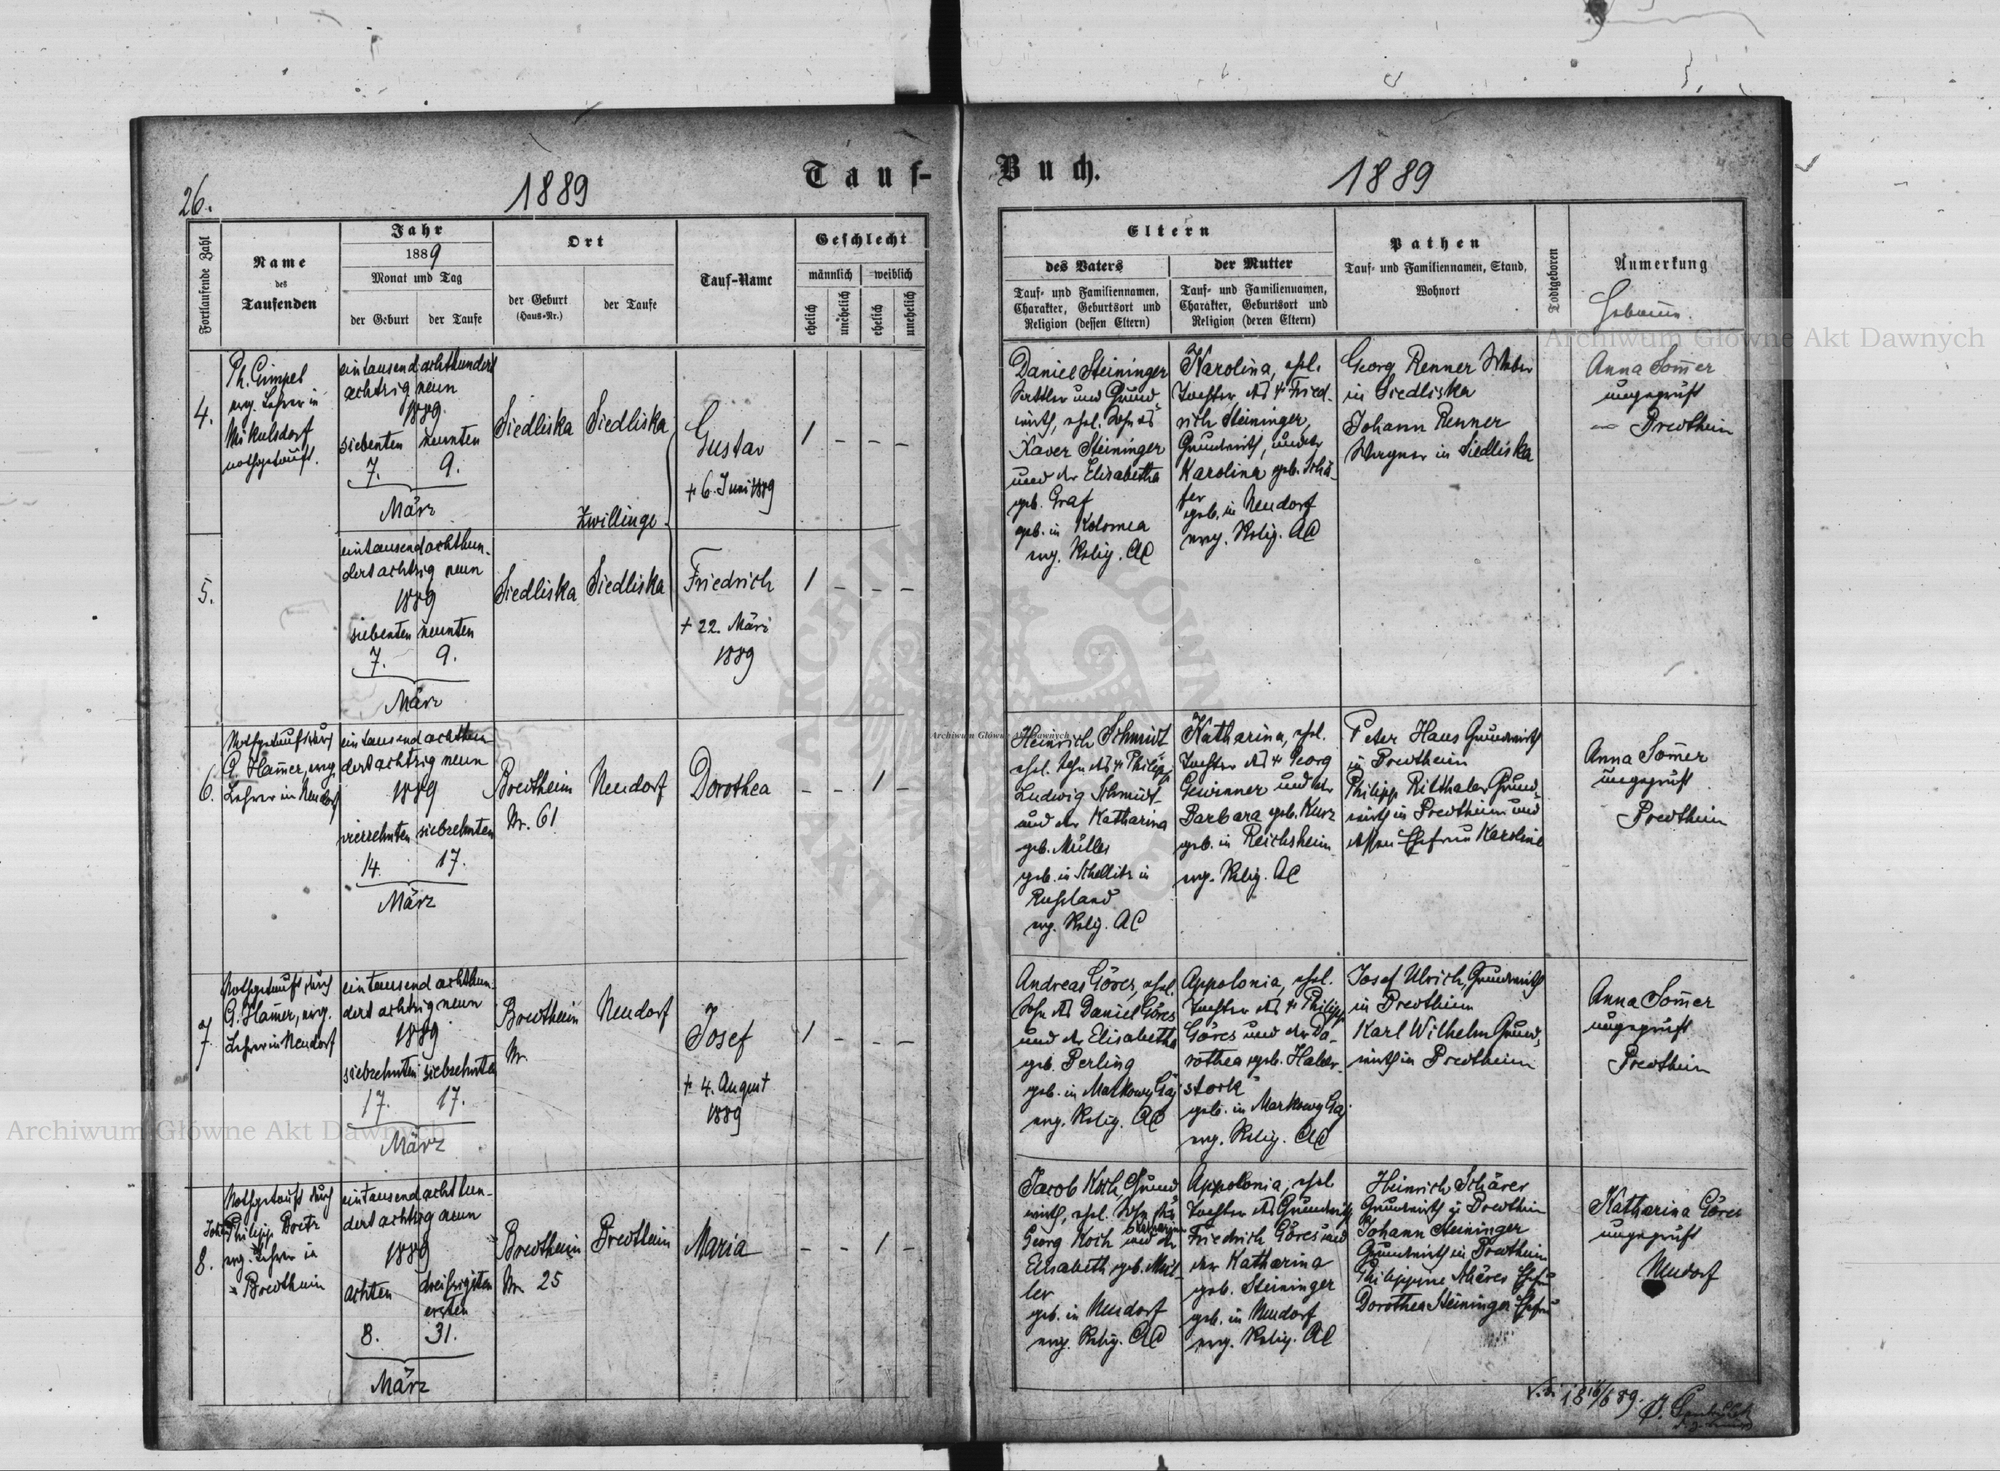 26.
1889
Tauf-
Buch.
1889
Fortlaufende Zahl
Name
des
Taufenden
Jahr
1889
Monat und Tag
der Geburt
der Taufe
Ort
der Geburt
(Haus-Nr.)
der Taufe
Tauf-Name
Geschlecht
männlich
weiblich
ehelich
unehelich
ehelich
unehelich
Eltern
des Vaters
Tauf- und Familiennamen,
Charakter, Geburtsort und
Religion (dessen Eltern)
der Mutter
Tauf- und Familiennamen,
Charakter, Geburtsort und
Religion (deren Eltern)
Pathen
Tauf- und Familiennamen, Stand,
Wohnort
Todtgeboren
Anmerkung
4.
Ph. Gimpel
evg. Lehrer in
Mikulsdorf
nothgetauft.
eintausend achthundert
achtzig neun
1889.
siebenten neunten
7. 9.
März
Siedliska
Siedliska
Gustav
+ 6. Juni 1889
1 - - -
Zwillinge
Daniel Steininger
Sattler und Grund-
wirth, ehel. Sohn des
Xaver Steininger
und der Elisabetha
geb. Graf
geb. in Kolomea
evg. Relig. AC
Karolina, ehel.
Tochter des + Fried-
rich Steininger,
Grundwirth, und der
Karolina geb. Schä-
fer
geb. in Neudorf
evg. Relig. AC
Georg Renner Weber
in Siedliska
Johann Renner
Wagner in Siedliska
Anna Som̄er
ungeprüft
Bredtheim
5.
eintausend achthun-
dert achtzig neun
1889
siebenten neunten
7. 9.
März
Siedliska
Siedliska
Friedrich
+ 22. März
1889
1 - - -
6.
Nothgetauft durch
G. Ham̄er, evg.
Lehrer in Neudorf
eintausend achthun-
dert achtzig neun
1889
vierzehnten siebzehnten
14. 17.
März
Bredtheim
Nr. 61
Neudorf
Dorothea
- - 1 -
Heinrich Schmidt
ehel. Sohn des + Philipp
Ludwig Schmidt
und der Katharina
geb. Müller
geb. in Schellitz in
Russland
evg. Relig. AC
Katharina, ehel.
Tochter des + Georg
Gewinner und der
Barbara geb. Kurz
geb. in Reichsheim
evg. Relig. AC
Peter Haus Grundwirth
in Bredtheim
Philipp Ritthaler Grund-
wirth in Bredtheim und
dessen Ehefrau Karoline
Anna Som̄er
ungeprüft
Bredtheim
7.
Nothgetauft durch
G. Ham̄er, evg.
Lehrer in Neudorf
eintausend achthun-
dert achtzig neun
1889
siebzehnten siebzehnten
17. 17.
März
Bredtheim
Nr.
Neudorf
Josef
+ 4. August
1889
1 - - -
Andreas Göres, ehel.
Sohn des Daniel Göres
und der Elisabetha
geb. Perling
geb. in Markowy Gaj
evg. Relig. AC
Appolonia, ehel.
Tochter des + Philipp
Göres und der Do-
rothea geb. Haber-
stock
geb. in Markowy Gaj.
evg. Relig. AC
Josef Ulrich, Grundwirth
in Bredtheim
Karl Wilhelm Grund-
wirth in Bredtheim
Anna Som̄er
ungeprüft
Bredtheim
8.
Nothgetauft durch
Philipp Bretz
evg. Lehrer in
Bredtheim
eintausend achthun-
dert achtzig neun
1889
achten dreißigsten
ersten
8. 31.
März
Bredtheim
Nr. 25
Bredtheim
Maria
- - 1 -
Jacob Koch, Grund-
wirth, ehel. Sohn des
Georg Koch und der
Elisabeth geb. Mül-
ler
geb. in Neudorf
evg. Relig. AC
Appolonia, ehel
Tochter des Grundwirth
Friedrich Göres und
der Katharina
geb. Steininger
geb. in Neudorf
evg. Relig. AC
Heinrich Schärer
Grundwirth in Bredtheim
Johann Steininger
Grundwirth in Bredtheim
Philippine Schärer Ehefrau
Dorothea Steininger Ehefrau
Katharina Göres
ungeprüft
Neudorf
Archiwum Główne Akt Dawnych
Archiwum Główne Akt Dawnych
Archiwum Główne Akt Dawnych